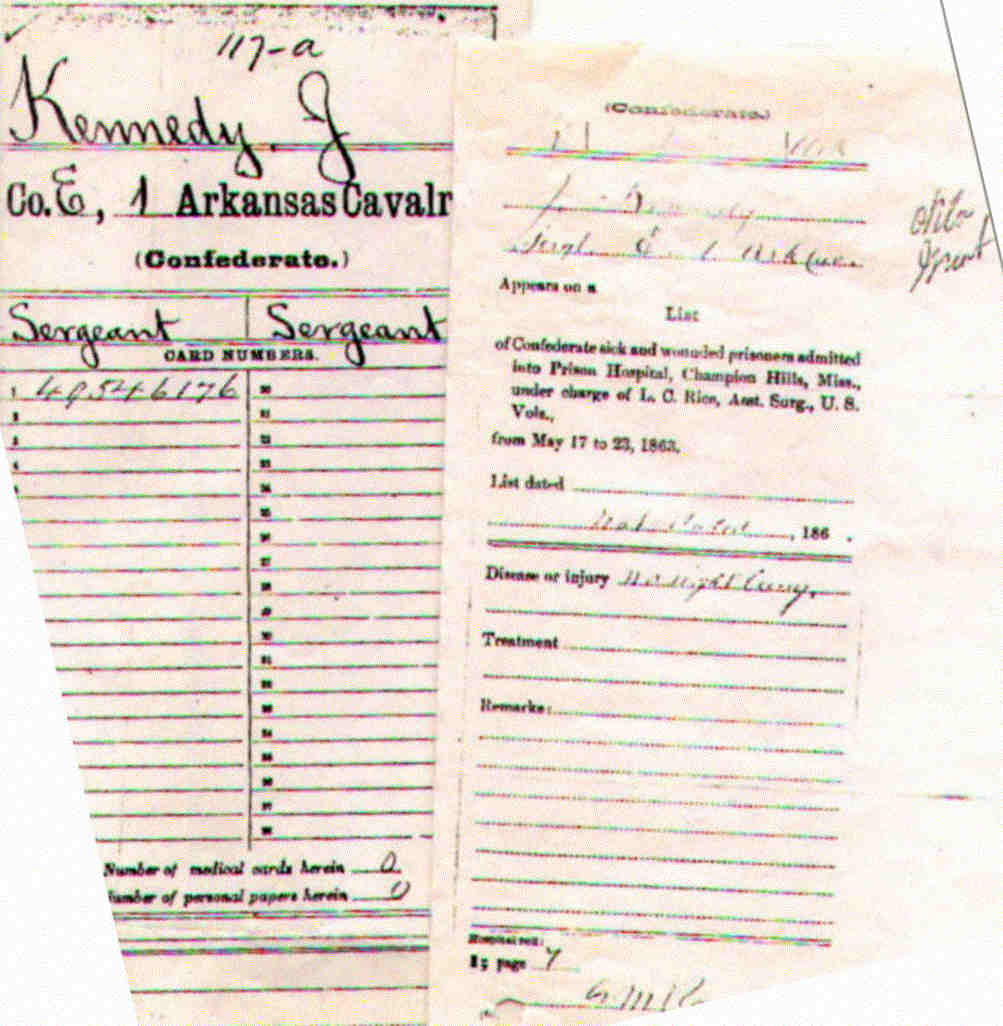 117-a
Kennedy, J
Co. E, 1 Arkansas Cavalr
(Confederate.)
Sergeant Sergeant
CARD NUMBERS.
1 49546176 20
2 21
3 22
4 23
5 24
25
26
27
28
29
30
31
32
33
34
35
36
37
38
Number of medical cards herein 0
Number of personal papers herein 0
(Confederate.)
J. Kennedy
Sergt. 1 Ark Cav.
Appears on a
List
of Confederate sick and wounded prisoners admitted
into Prison Hospital, Champion Hills, Miss.,
under charge of L. C. Rice, Asst. Surg., U. S.
Vols.,
from May 17 to 23, 1863.
List dated
Not dated, 186 .
Disease or injury right lung.
Treatment
Remarks:
page 7